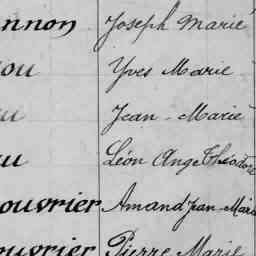 nnon Joseph Marie
ou Yves Marie
u Jean-Marie
u Léon Ange Théodore
ouvrier Amand Jean-Marie
ouvrier Pierre Marie